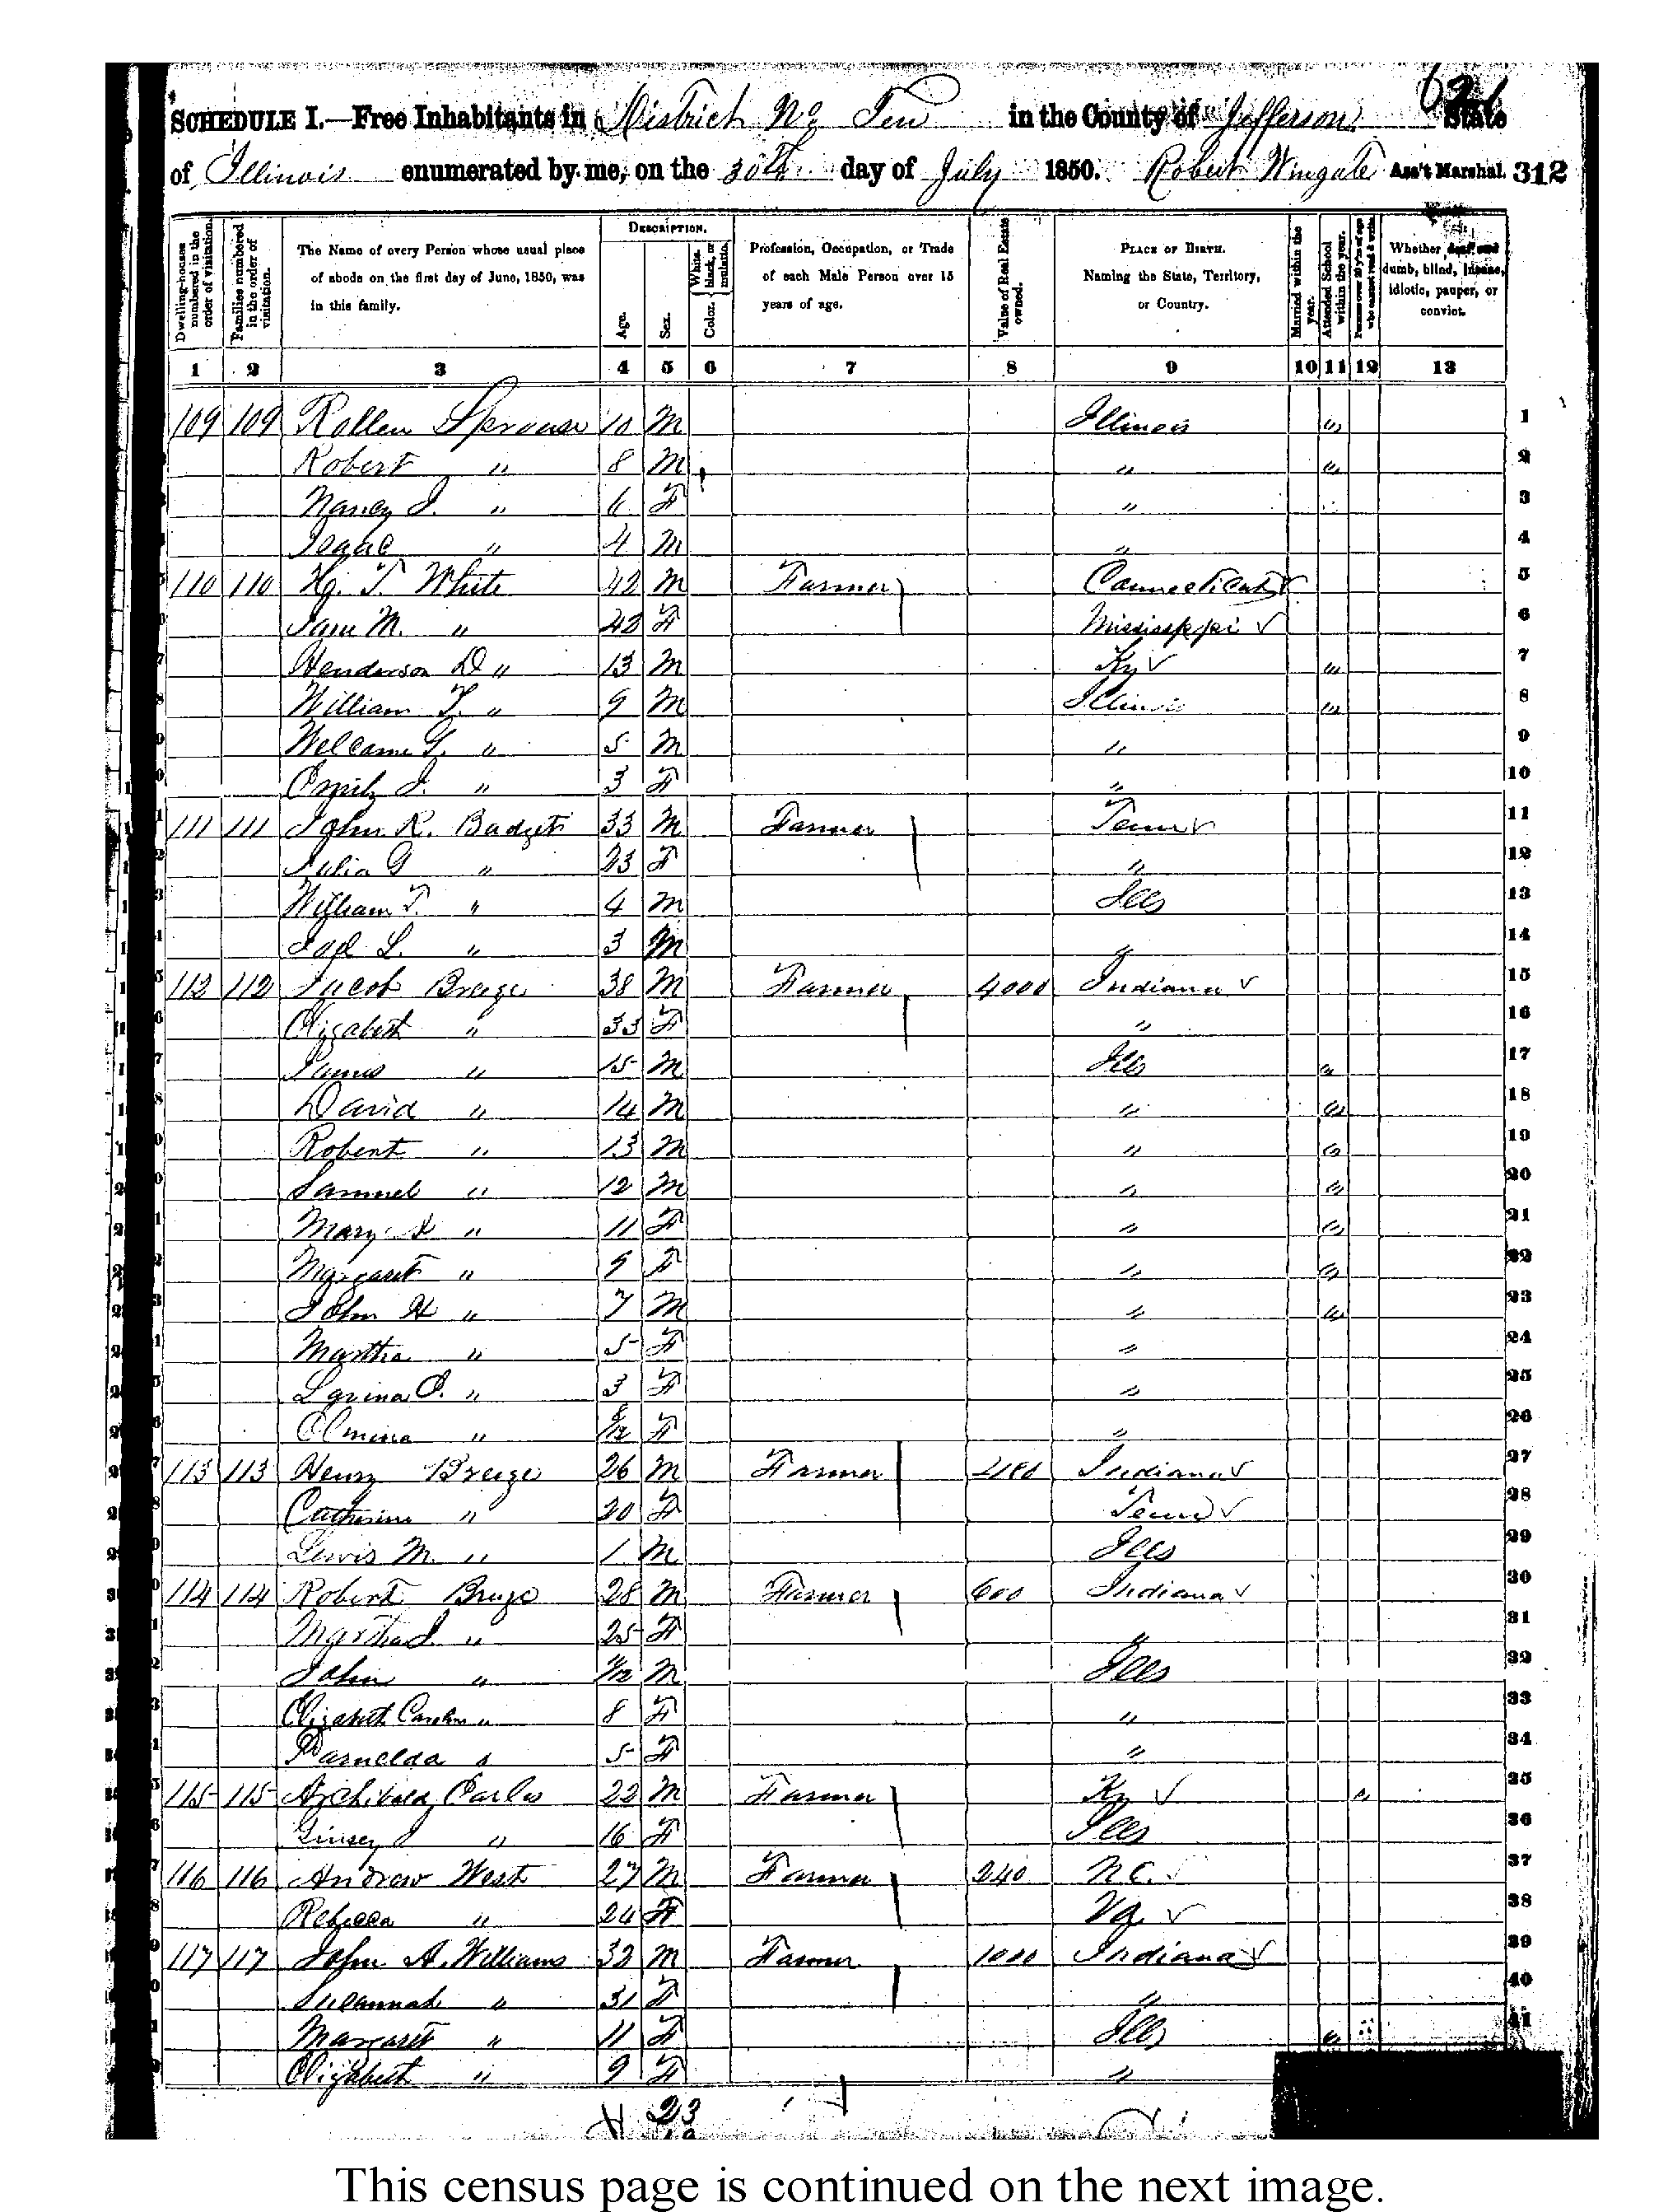 SCHEDULE I.—Free Inhabitants in District No Ten in the County of Jefferson State
of Illinois enumerated by me, on the 30th day of July 1850. Robert Wingate Ass't Marshal. 312
Dwelling-houses numbered in the order of visitation.
Families numbered in the order of visitation.
The Name of every Person whose usual place of abode on the first day of June, 1850, was in this family.
DESCRIPTION.
Age.
Sex.
Color. White, black, or mulatto.
Profession, Occupation, or Trade of each Male Person over 15 years of age.
Value of Real Estate owned.
PLACE OF BIRTH. Naming the State, Territory, or Country.
Married within the year.
Attended School within the year.
Persons over 20 y'rs of age who cannot read & write.
Whether deaf and dumb, blind, insane, idiotic, pauper, or convict.
1 2 3 4 5 6 7 8 9 10 11 12 13
109 109 Rollen Sprouse 10 M Illinois 1
Robert " 8 M " 2
Nancy J. " 6 F " 3
Isaac " 4 M " 4
110 110 T. White 42 M Farmer Connecticut 5
Jane M. " 42 F Mississippi 6
Henderson D " 13 M Ky 7
William T. " 9 M Illinois 8
Welcome G. " 5 M " 9
Emily J. " 3 F " 10
111 111 John R. Badgett 33 M Farmer Tenn 11
Julia G " 23 F " 12
William T. " 4 M Ills 13
L. " 3 M " 14
112 112 Jacob Breeze 38 M Farmer 4000 Indiana 15
Elizabeth " 33 F " 16
James " 15 M Ills 17
David " 14 M " 18
Robert " 13 M " 19
Samuel " 12 M " 20
Mary " 11 F " 21
Margaret " 9 F " 22
John H " 7 M " 23
Martha " 5 F " 24
" 3 F " 25
Elmina " 8/12 F " 26
113 113 Henry Breeze 26 M Farmer Indiana 27
Catherine " 20 F Tenn 28
Lewis M. " 1 M Ills 29
114 114 Robert Breeze 28 M Farmer 600 Indiana 30
Martha J. " 25 F " 31
John " M Ills 32
Elizabeth Caroline " 8 F " 33
Parnelda " 5 F " 34
115 115 Archibald 22 M Farmer Ky 35
" 16 F Ills 36
116 116 Andrew West 27 M Farmer 240 N.C. 37
Rebecca " 24 F Va. 38
117 117 John A. Williams 32 M Farmer 1000 Indiana 39
Susannah " 31 F " 40
Margaret " 11 F Ills 41
Elizabeth " 9 F "
23
This census page is continued on the next image.